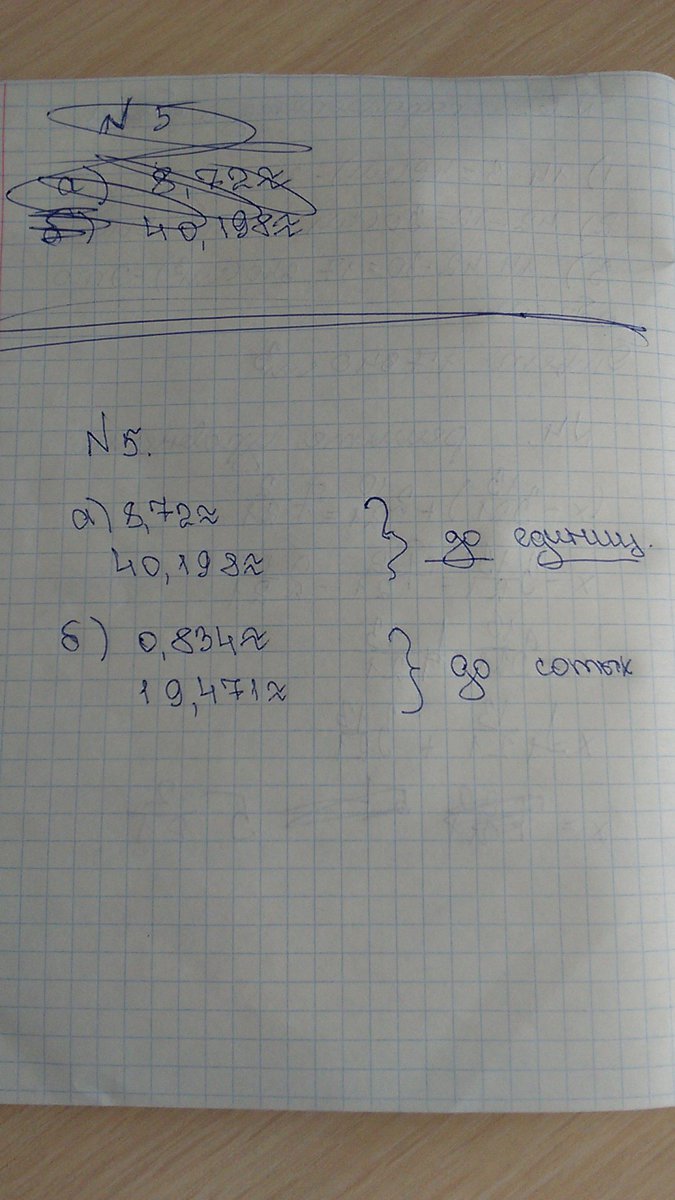 N 5
а) 8,72≈
б) 40,198≈
N 5.
а) 8,72≈
40,198≈ } до единиц.
б) 0,834≈
19,471≈ } до сотых